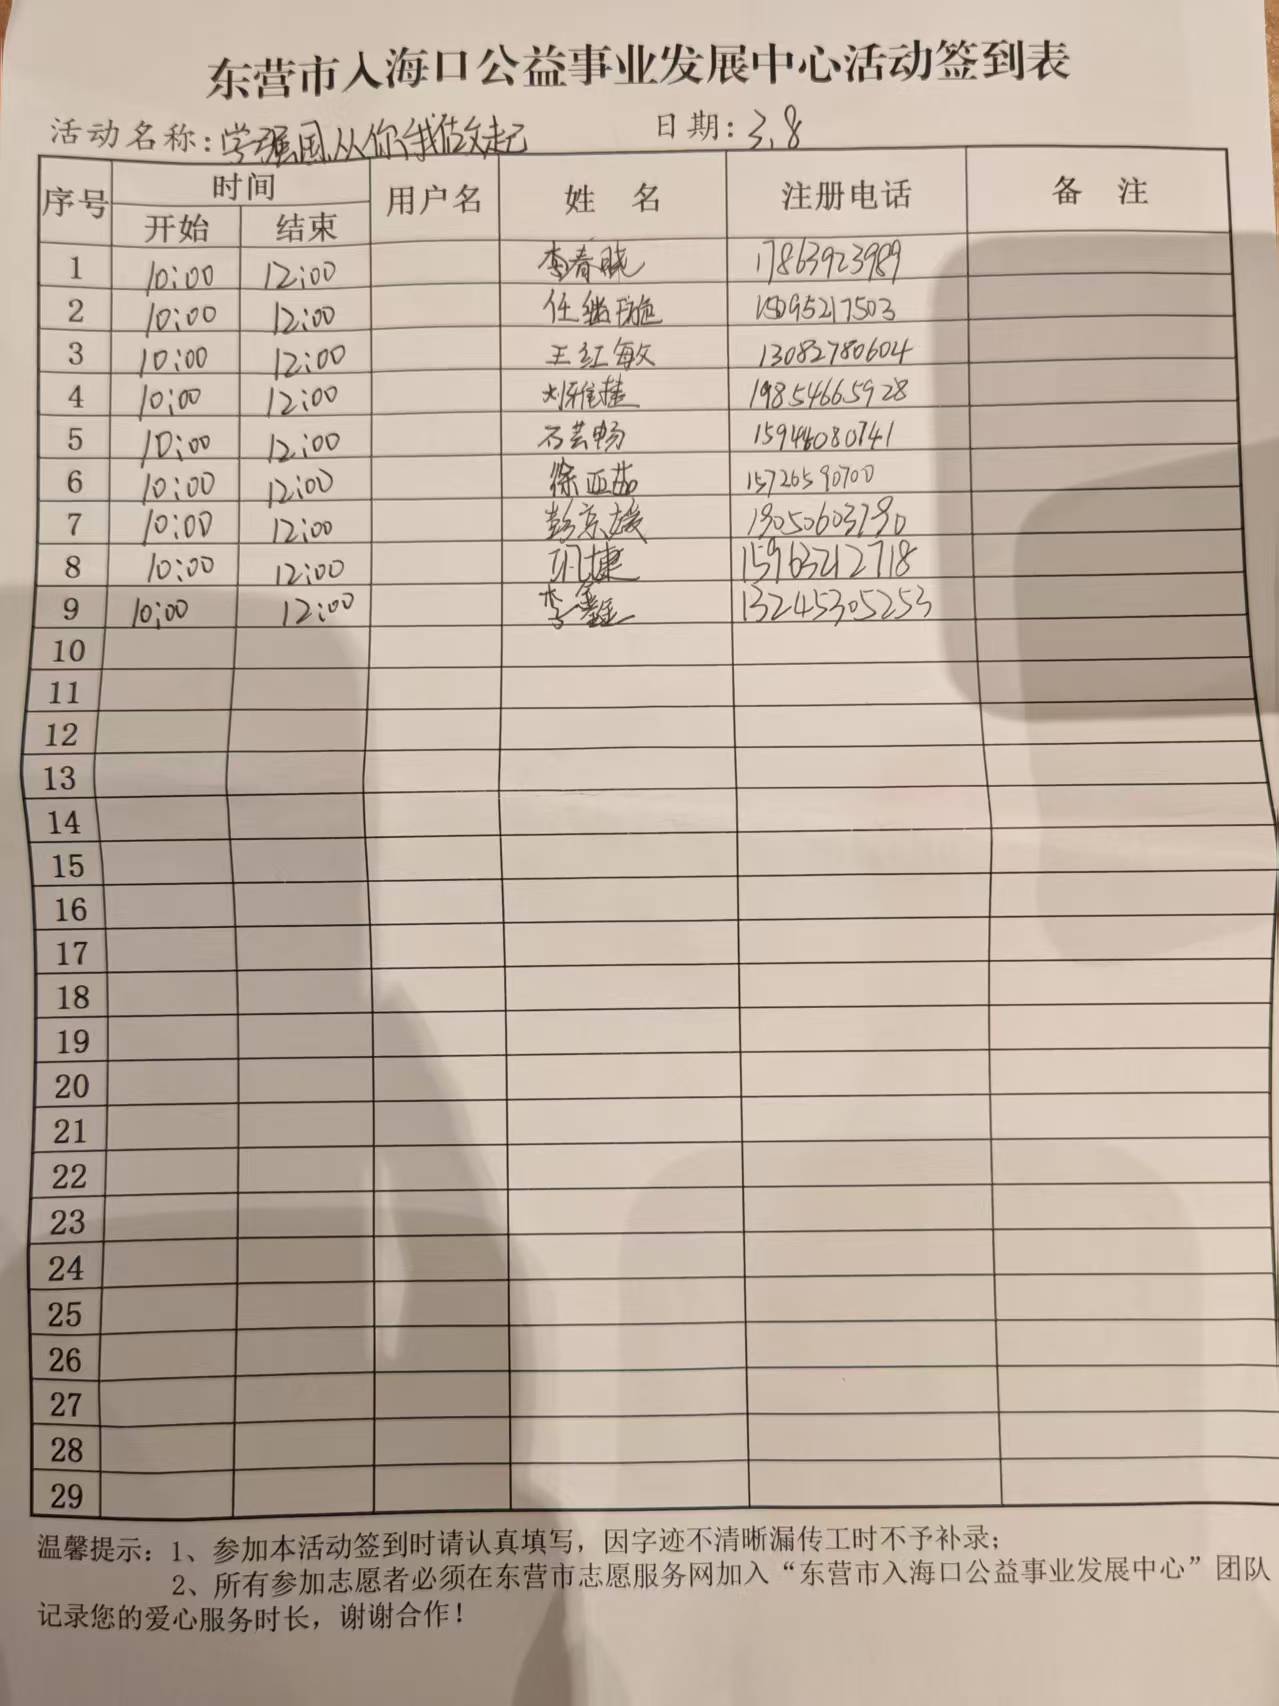 东营市入海口公益事业发展中心活动签到表
活动名称：学强国从你我做起 日期：3.8
序号 时间 用户名 姓 名 注册电话 备 注
开始 结束
1 10:00 12:00 李春晓 17863923989
2 10:00 12:00 任继 15095217503
3 10:00 12:00 王红敏 13082780604
4 10:00 12:00 刘雅捷 19854665928
5 10:00 12:00 石芸畅
6 10:00 12:00 徐亚茹 15726590700
7 10:00 12:00 彭京媛
8 10:00 12:00 巩捷 15963212718
9 10:00 12:00 李 13245305253
10
11
12
13
14
15
16
17
18
19
20
21
22
23
24
25
26
27
28
29
温馨提示：1、参加本活动签到时请认真填写，因字迹不清晰漏传工时不予补录；
2、所有参加志愿者必须在东营市志愿服务网加入“东营市入海口公益事业发展中心”团队
记录您的爱心服务时长，谢谢合作！